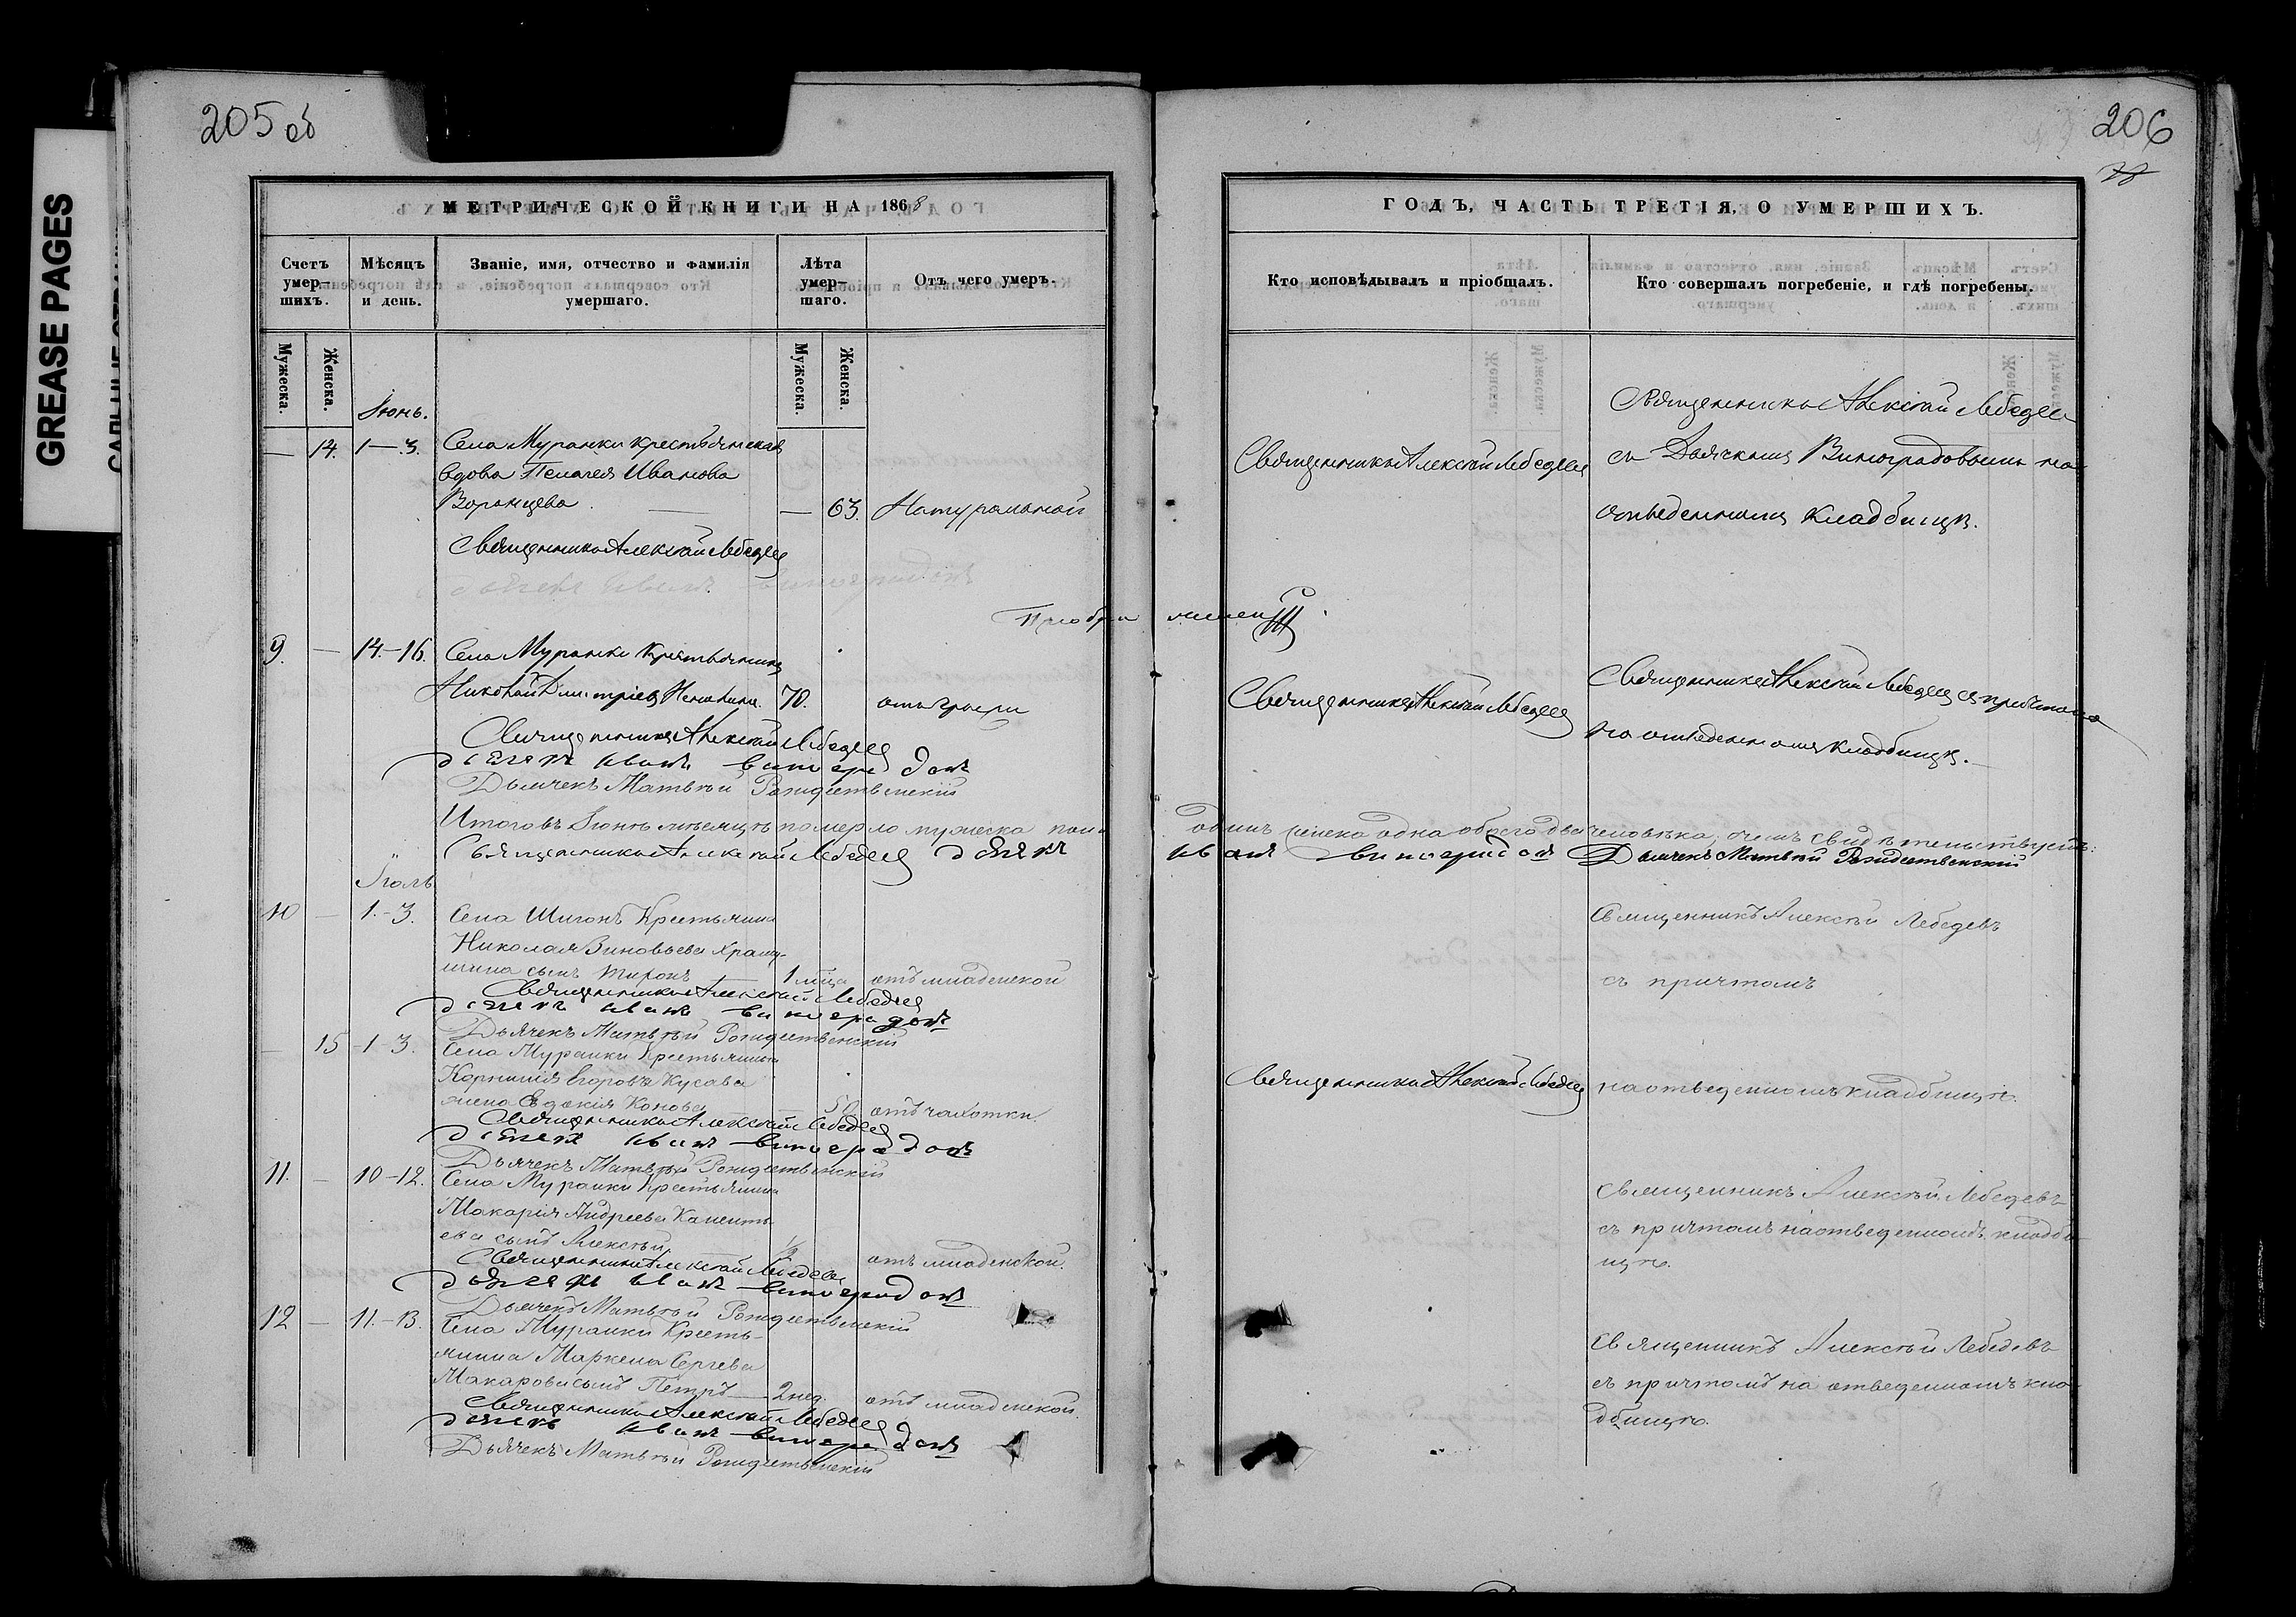 GREASE PAGES
205 об
МЕТРИЧЕСКОЙ КНИГИ НА 1868
Счетъ умер- шихъ.
Мѣсяцъ и день.
Званіе, имя, отчество и фамилія умершаго.
Лѣта умер- шаго.
Отъ чего умеръ.
Мужеска.
Женска.
Мужеска.
Женска.
Іюнь.
— 14. 1—3. Села Муранки крестьянская
вдова Пелагея Иванова
Воронцева — 63. Натуральной
Священникъ Алексѣй Лебедевъ
9. — 14.-16. Села Муранки Крестьянинъ
Николай Димитріевъ 70.
Священникъ Алексѣй Лебедевъ
дьячекъ иванъ виноградовъ
Дьячекъ Матвѣй Рождественскій
Итого въ Іюнѣ мѣсяцѣ померло мужеска пола
Священникъ Алексѣй Лебедевъ дьячекъ
Іюль
10 — 1.-3. Села Шигонъ Крестьянина
Николая Зиновьева Храму-
шина сынъ Тихонъ 1 мѣца отъ младенской
Священникъ Алексѣй Лебедевъ
дьячекъ иванъ виноградовъ
Дьячекъ Матвѣй Рождественскій
— 15 1-3. Села Муранки Крестьянина
Корнилія Егорова Кусава
жена Евдокія 50 отъ чахотки
Священникъ Алексѣй Лебедевъ
дьячекъ иванъ виноградовъ
Дьячекъ Матвѣй Рождественскій
11. — 10-12. Села Муранки Крестьянина
Макарія Андреева Калентъ
ева сынъ Алексѣй 1/2 отъ младенской.
Священникъ Алексѣй Лебедевъ
дьячекъ иванъ виноградовъ
Дьячекъ Матвѣй Рождественскій
12 — 11.-13. Села Муранки Кресть-
янина Маркела Сергѣева
Макарова сынъ Петръ — 2 нед. отъ младенской.
Священникъ Алексѣй Лебедевъ
дьячекъ иванъ виноградовъ
Дьячекъ Матвѣй Рождественскій
206
ГОДЪ, ЧАСТЬ ТРЕТІЯ, О УМЕРШИХЪ.
Кто исповѣдывалъ и пріобщалъ.
Кто совершалъ погребеніе, и гдѣ погребены.
Священникъ Алексѣй Лебедевъ
Священникъ Алексѣй Лебедевъ
съ Дьячкомъ Виноградовымъ на
отведенномъ кладбищѣ.
Священникъ Алексѣй Лебедевъ
Священникъ Алексѣй Лебедевъ съ причтомъ
на отведенномъ кладбищѣ.
одинъ женска одна обоего два человѣка; о чемъ свидѣтельствуемъ:
иванъ виноградовъ Дьячекъ Матвѣй Рождественскій
Священникъ Алексѣй Лебедевъ
съ причтомъ
Священникъ Алексѣй Лебедевъ
на отведенномъ кладбищѣ.
Священникъ Алексѣй Лебедевъ
съ причтомъ на отведенномъ кладби
щѣ.
Священникъ Алексѣй Лебедевъ
съ причтомъ на отведенномъ кла
дбищѣ.